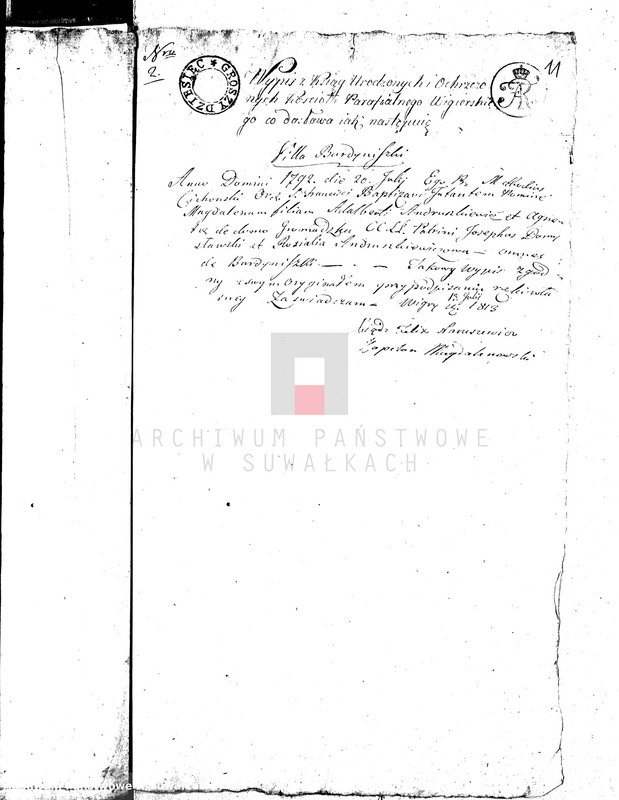 Nru
2.
11
DZIESIĘC GROSZI
Wypis z Xsiąg Urodzonych i Ochrzczo
nych Kościoła Parafialnego Wigierskie
go co do słowa iak następuie
Villa Burdyniszki
Anno Domini 1792 die 20 July Ego Fr. Mathias
Cichonski Baptizavi Infantem Nomine
Magdalenam filiam Adalberti Andruszkiewicz et Agne
de domo Patrini Josephus Domy
sławski et Rosalia Andruszkiewiczowa omnes
de Burdyniszki — . — Takowy Wypis zgod
ny z swym Oryginałem przy podpisaniu ręki wła
sney Zaświadczam — Wigry 1813
13 July
Xiądz Felix Naruszewicz
Kapelan Magdalenowski
ARCHIWUM PAŃSTWOWE
W SUWAŁKACH